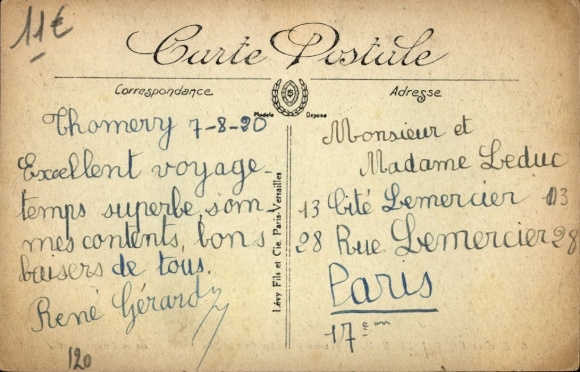 11€
Carte Postale
Correspondance
Adresse
Modèle Déposé
Thomery 7-8-20
Excellent voyage-
temps superbe, som-
mes contents, bons
baisers de tous.
René Gérard
120
Lévy Fils et Cie, Paris-Versailles
Monsieur et
Madame Leduc
13 Cité Lemercier 13
28 Rue Lemercier 28
Paris
17ème